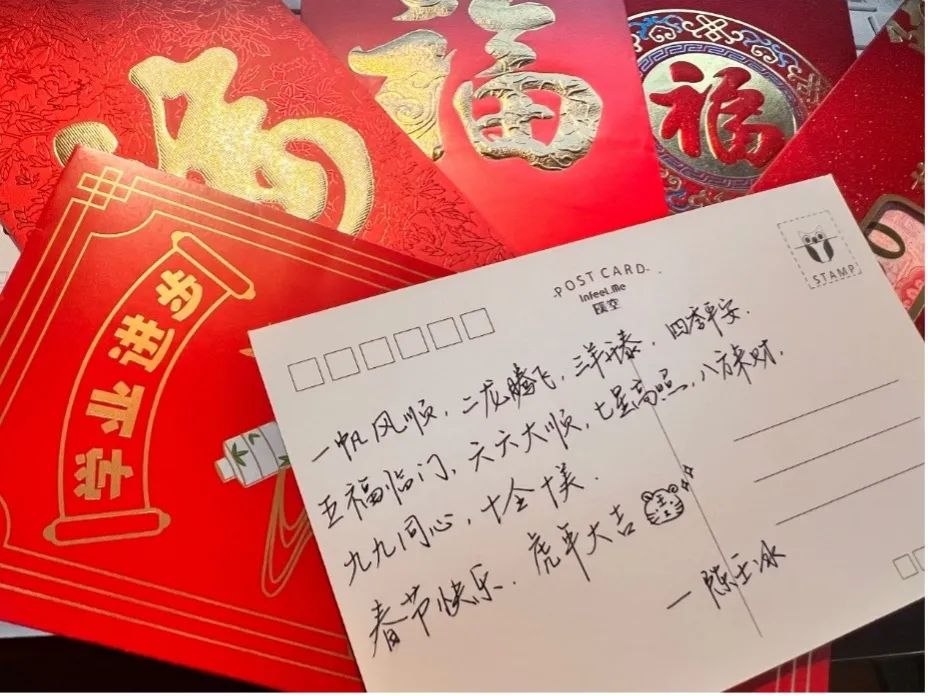 福
福
福
学业进步
POST CARD
Infeel.me
STAMP
一帆风顺,二龙腾飞,三羊开泰,四季平安.
五福临门,六六大顺,七星高照,八方来财,
九九同心,十全十美.
春节快乐.虎年大吉
—陈士冰